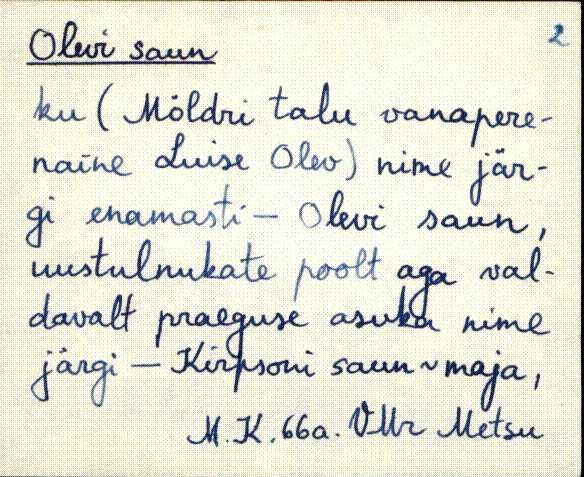 2
Olevi saun
ku (Möldri talu vanapere-
naine Luise Olev) nime jär-
gi enamasti – Olevi saun,
uustulnukate poolt aga val-
davalt praeguse asuka nime
järgi – Kirpsoni saun ~ maja,
M.K. 66a. VMr Metsu